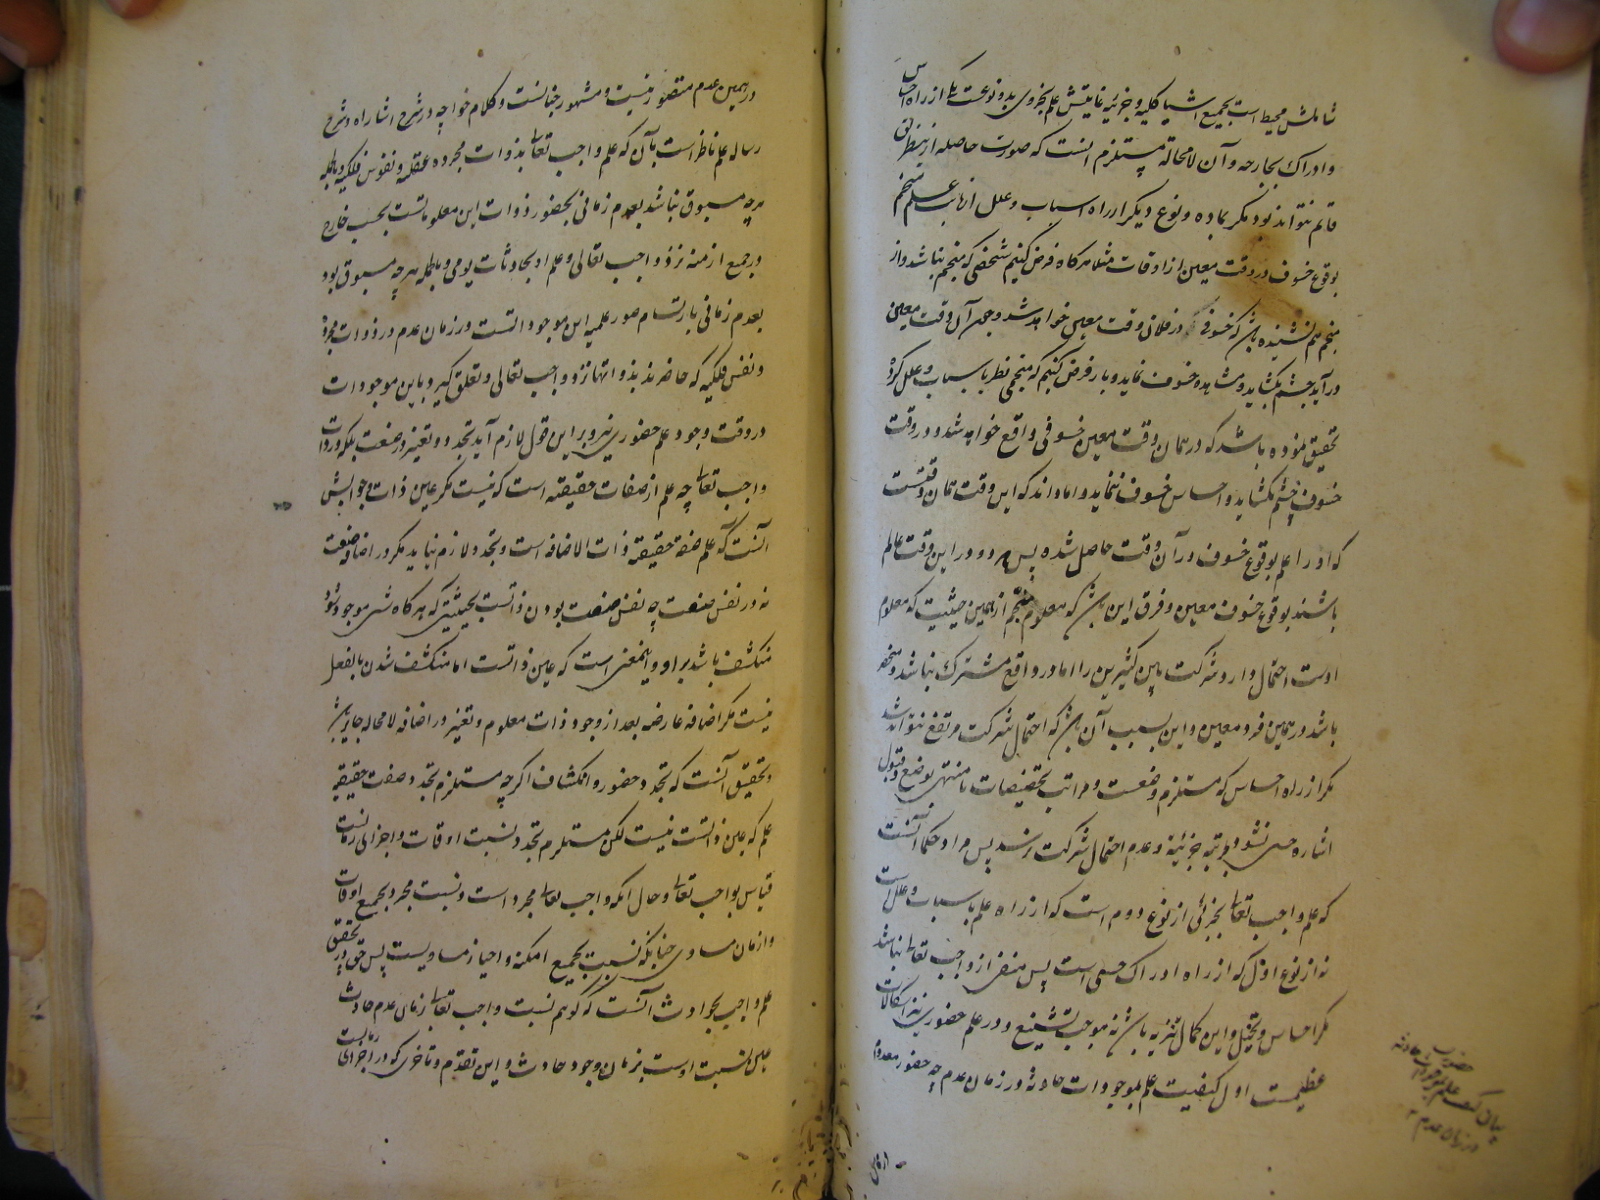 شاملش محیط است بجمیع اشیا کلیه و جزئیه غایتش علم بجزوی بدو نوعست یکی از راه احساس
و ادراک بجارحه و آن لامحاله مستلزم آنست که صورت حاصله از این طریق
قائم نتواند بود مگر بماده و نوع دیگر از راه اسباب و علل آنها علم منجم
بوقوع خسوف در وقت معین از اوقات مثلا هرگاه فرض کنیم شخصی که منجم نباشد و از
منجم هم نشنیده باشد که خسوفی در فلان وقت معین خواهد شد و چون آن وقت معین
درآید چشم بگشاید و مشاهده خسوف نماید و باز فرض کنیم که منجمی نظر باسباب و علل کرده
تحقیق نموده باشد که در همان وقت معین خسوفی واقع خواهد شد و در وقت
خسوف چشم نگشاید و احساس خسوف ننماید و اما داند که این وقت همان وقتیست
که او را علم بوقوع خسوف در آن وقت حاصل شده پس هر دو در این وقت عالم
باشند بوقوع خسوف معین و فرق این باشد که معلوم منجم از این حیثیت که معلوم
اوست احتمال دارد شرکت مابین کثیرین را اما در واقع مشترک نباشد و منحصر
باشد در همین فرد معین و این بسبب آن باشد که احتمال شرکت مرتفع نتواند شد
مگر از راه احساس که مستلزم وضعست و مراتب تخصیصات تا منتهی بوضع و قبول
اشاره حسی نشود بمرتبه جزئیه و عدم احتمال شرکت نرسد پس مراد حکما آنست
که علم واجب تعالی بجزئی از نوع دوم است که از راه علم باسباب و علل است
نه از نوع اول که از راه ادراک حسی است پس منفی از واجب تعالی نباشد
مگر احساس و تخیل و این کمال تنزیه باشد نه موجب تشنیع و در علم حضوری نیز اشکالات
عظیمست اول کیفیت علم بموجودات حادثه در زمان عدم چه حضور معدوم
بیان کیفیت علم حضوری بموجودات حادثه
در زمان عدم
در همین عدم متصور نیست و مشهور چنانست و کلام خواجه در شرح اشارات و شرح
رساله علم ناظر است بآن که علم واجب تعالی بذوات مجرده عقلیه و نفوس فلکیه و بالجمله
هر چه مسبوق نباشد بعدم زمانی بحضور ذوات این معلوماتست بحسب خارج
در جمیع ازمنه نزد واجب تعالی و علم او بحادثات یومی و بالجمله هر چه مسبوق بود
بعدم زمانی بارتسام صور علمیه این موجوداتست در زمان عدم در ذوات مجرده
و نفس فلکیه که حاضرند بذواتها نزد واجب تعالی و تعلق گیرد باین موجودات
در وقت وجود علم حضوری نیز و بر این قول لازم آید تجدد و تغیر در صنعت بلکه در ذات
واجب تعالی چه علم از صفات حقیقیه است که نیست مگر عین ذات و جوابش
آنست که علم صفة حقیقیة ذات الاضافه است و تجدد لازم نیاید مگر در اضافه صفت
نه در نفس صفت چه نفس صفت بودن ذاتست بحیثیتی که هرگاه شی موجود شود
منکشف باشد بر او و اینمعنی است که عین ذاتست اما منکشف شدن بالفعل
نیست مگر اضافه عارضه بعد از وجود ذات معلوم و تغیر در اضافه لامحاله جایز باشد
و تحقیق آنست که تجدد حضور و انکشاف اگرچه مستلزم تجدد صفت حقیقیه
علم که عین ذاتست نیست لکن مستلزم تجدد نسبت اوقات و اجزای زمانست
قیاس بواجب تعالی و حال آنکه واجب تعالی مجرد است و نسبت مجرد بجمیع اوقات
و ازمان مساوی چنانکه نسبت بجمیع امکنه و احیاز مساویست پس حق در تحقیق
علم واجب بحوادث آنست که گوییم نسبت واجب تعالی بزمان عدم حادث
عین نسبت اوست بزمان وجود حادث و این تقدم و تاخری که در اجزای زمانست